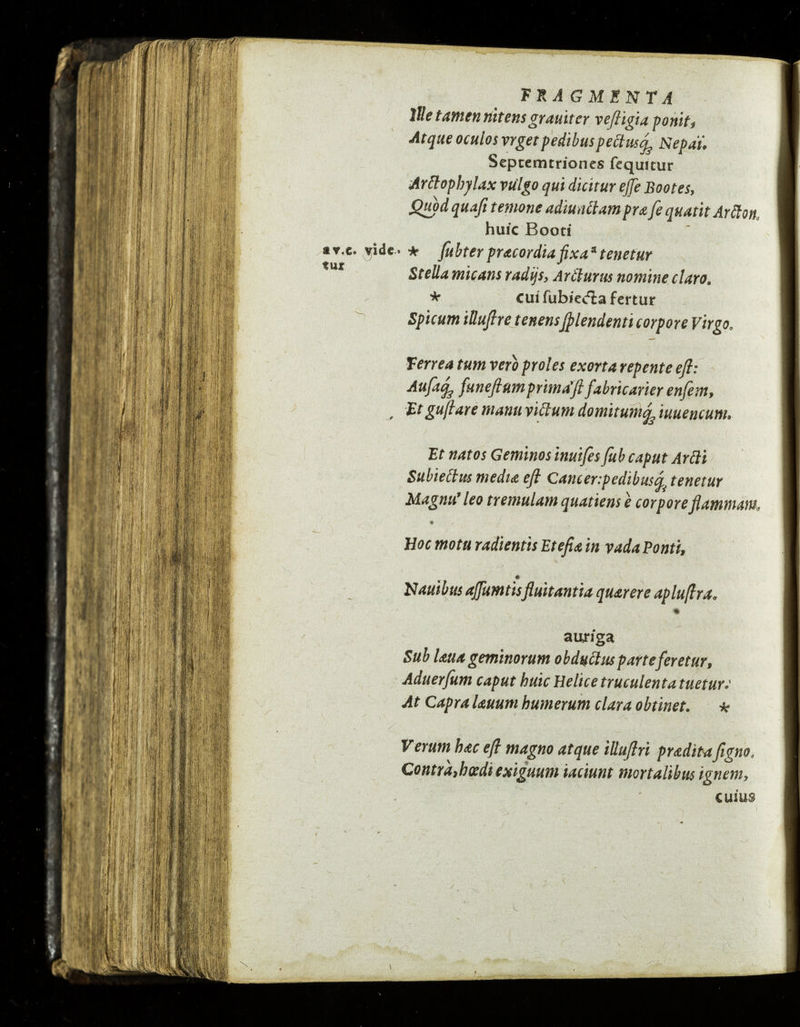 FRAGMENTA
Ille tamen nitens grauiter veſtigia ponit,
Atque oculos vrget pedibus pectusq́; Nepaï.
Septemtriones ſequitur
Arctophylax vulgo qui dicitur eſſe Bootes,
Quòd quaſi temone adiunctam præ ſe quatit Arcton.
huic Booti
* ſubter præcordia fixa ª tenetur
a v.c. videtur
Stella micans radijs, Arcturus nomine claro.
* cui ſubiecta fertur
Spicum illuſtre tenens ſplendenti corpore Virgo.
Ferrea tum verò proles exorta repente eſt:
Auſaq́; funeſtum prima'ſt fabricarier enſem,
Et guſtare manu victum domitumq́; iuuencum.
Et natos Geminos inuiſes ſub caput Arcti
Subiectus mediæ eſt Cancer: pedibusq́; tenetur
Magnu' leo tremulam quatiens è corpore flammam.
Hoc motu radientis Eteſiæ in vada Ponti,
Nauibus aſſumtis fluitantia quærere apluſtra.
auriga
Sub læua geminorum obductus parte feretur,
Aduerſum caput huic Helice truculenta tuetur:
At Capra læuum humerum clara obtinet. *
Verum hæc eſt magno atque illuſtri prædita ſigno.
Contrà, hœdi exiguum iaciunt mortalibus ignem,
cuius